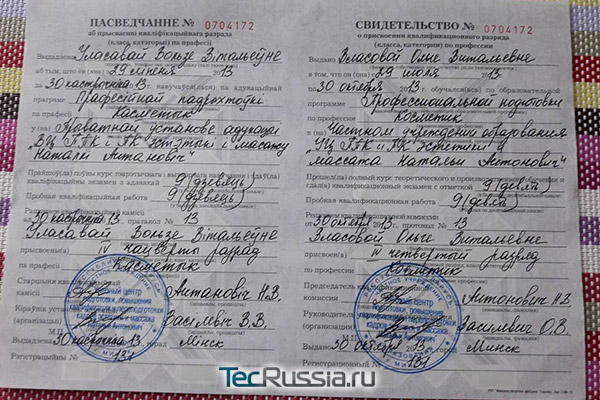 ПАСВЕДЧАННЕ № 0704172
аб прысваенні кваліфікацыйнага разрада
(класа, катэгорыі) па прафесіі
Выдадзена Уласавай Вользе Вітальеўне
аб тым, што ён (яна) з 29 ліпеня 2013
па 30 кастрычніка 13 г. навучаўся(лася) па адукацыйнай
праграме Прафесійнай падрыхтоўкі
Касметык
у (на) Прыватнай установе адукацыі
і масажу
Наталлі Антановіч"
Прайшоў(ла) поўны курс тэарэтычнага і
кваліфікацыйны экзамен з адзнакай 9 (дзевяць)
Пробная кваліфікацыйная работа 9 (дзевяць)
камісіі
ад 30 кастрычніка 13 г. пратакол № 13
Уласавай Вользе Вітальеўне
прысвоены IV чацвёрты разрад
па прафесіі Касметык
Старшыня кваліфікацыйнай
камісіі Антановіч Н.В.
Кіраўнік
(арганізацыі) Васілевіч В.В.
М.П.
Выдадзена 30 кастрычніка 2013 г. Мінск
Рэгістрацыйны № 131
СВИДЕТЕЛЬСТВО № 0704172
о присвоении квалификационного разряда
(класса, категории) по профессии
Выдано Власовой Ольге Витальевне
в том, что он (она) с 29 июля 2013
по 30 октября 13 г. обучался(ась) по образовательной
программе Профессиональной подготовки
Косметик
в (на) Частном учреждении образования
УЦ ПК и ПК эстетики и
массажа Натальи Антонович"
Прошел(ла) полный курс теоретического и производственного обучения и
сдал(а) квалификационный экзамен с отметкой 9 (девять)
Пробная квалификационная работа 9 (девять)
Решением квалификационной комиссии
от 30 октября 13 г. протокол № 13
Власовой Ольге Витальевне
присвоен IV четвертый разряд
по профессии Косметик
Председатель
комиссии Антонович Н.В.
Руководитель
(организации) Василевич О.В.
М.П.
Выдано 30 октября 2013 г. Минск
Регистрационный № 131
TecRussia.ru